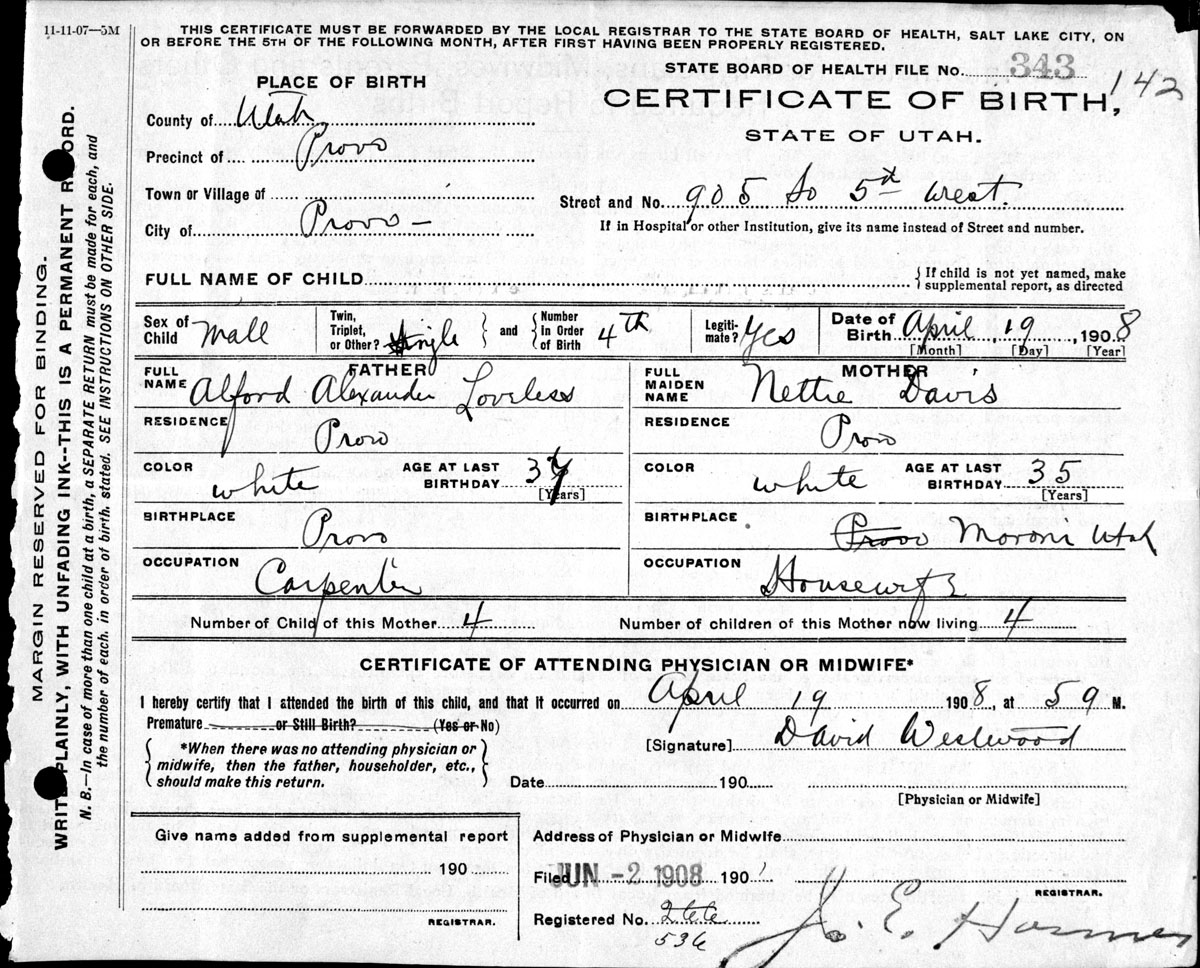 11-11-07—5M
THIS CERTIFICATE MUST BE FORWARDED BY THE LOCAL REGISTRAR TO THE STATE BOARD OF HEALTH, SALT LAKE CITY, ON
OR BEFORE THE 5TH OF THE FOLLOWING MONTH, AFTER FIRST HAVING BEEN PROPERLY REGISTERED.
STATE BOARD OF HEALTH FILE No. 343
142
PLACE OF BIRTH
CERTIFICATE OF BIRTH,
STATE OF UTAH.
County of Utah
Precinct of Provo
Town or Village of
City of Provo –
Street and No. 905 So 5th West.
If in Hospital or other Institution, give its name instead of Street and number.
FULL NAME OF CHILD
{ If child is not yet named, make
supplemental report, as directed
Sex of Child Mall
Twin, Triplet, or Other? Single } and { Number in Order of Birth 4th
Legiti-mate? Yes
Date of Birth April, 19, 1908
[Month] [Day] [Year]
FATHER
FULL NAME Alford Alexander Loveless
RESIDENCE Provo
COLOR white AGE AT LAST BIRTHDAY 37
[Years]
BIRTHPLACE Provo
OCCUPATION Carpenter
MOTHER
FULL MAIDEN NAME Nettie Davis
RESIDENCE Provo
COLOR white AGE AT LAST BIRTHDAY 35
[Years]
BIRTHPLACE Provo Moroni Utah
OCCUPATION Housewife
Number of Child of this Mother 4
Number of children of this Mother now living 4
CERTIFICATE OF ATTENDING PHYSICIAN OR MIDWIFE*
I hereby certify that I attended the birth of this child, and that it occurred on April 19 1908, at 5 a M.
Premature or Still Birth? (Yes or No)
{ *When there was no attending physician or
midwife, then the father, householder, etc.,
should make this return. }
[Signature] David Westwood
Date 190
[Physician or Midwife]
Give name added from supplemental report
190
REGISTRAR.
Address of Physician or Midwife
Filed JUN -2 1908 190
REGISTRAR.
Registered No.
536
MARGIN RESERVED FOR BINDING.
WRITE PLAINLY, WITH UNFADING INK--THIS IS A PERMANENT RECORD.
N. B.—In case of more than one child at a birth, a SEPARATE RETURN must be made for each, and
the number of each, in order of birth, stated. SEE INSTRUCTIONS ON OTHER SIDE.